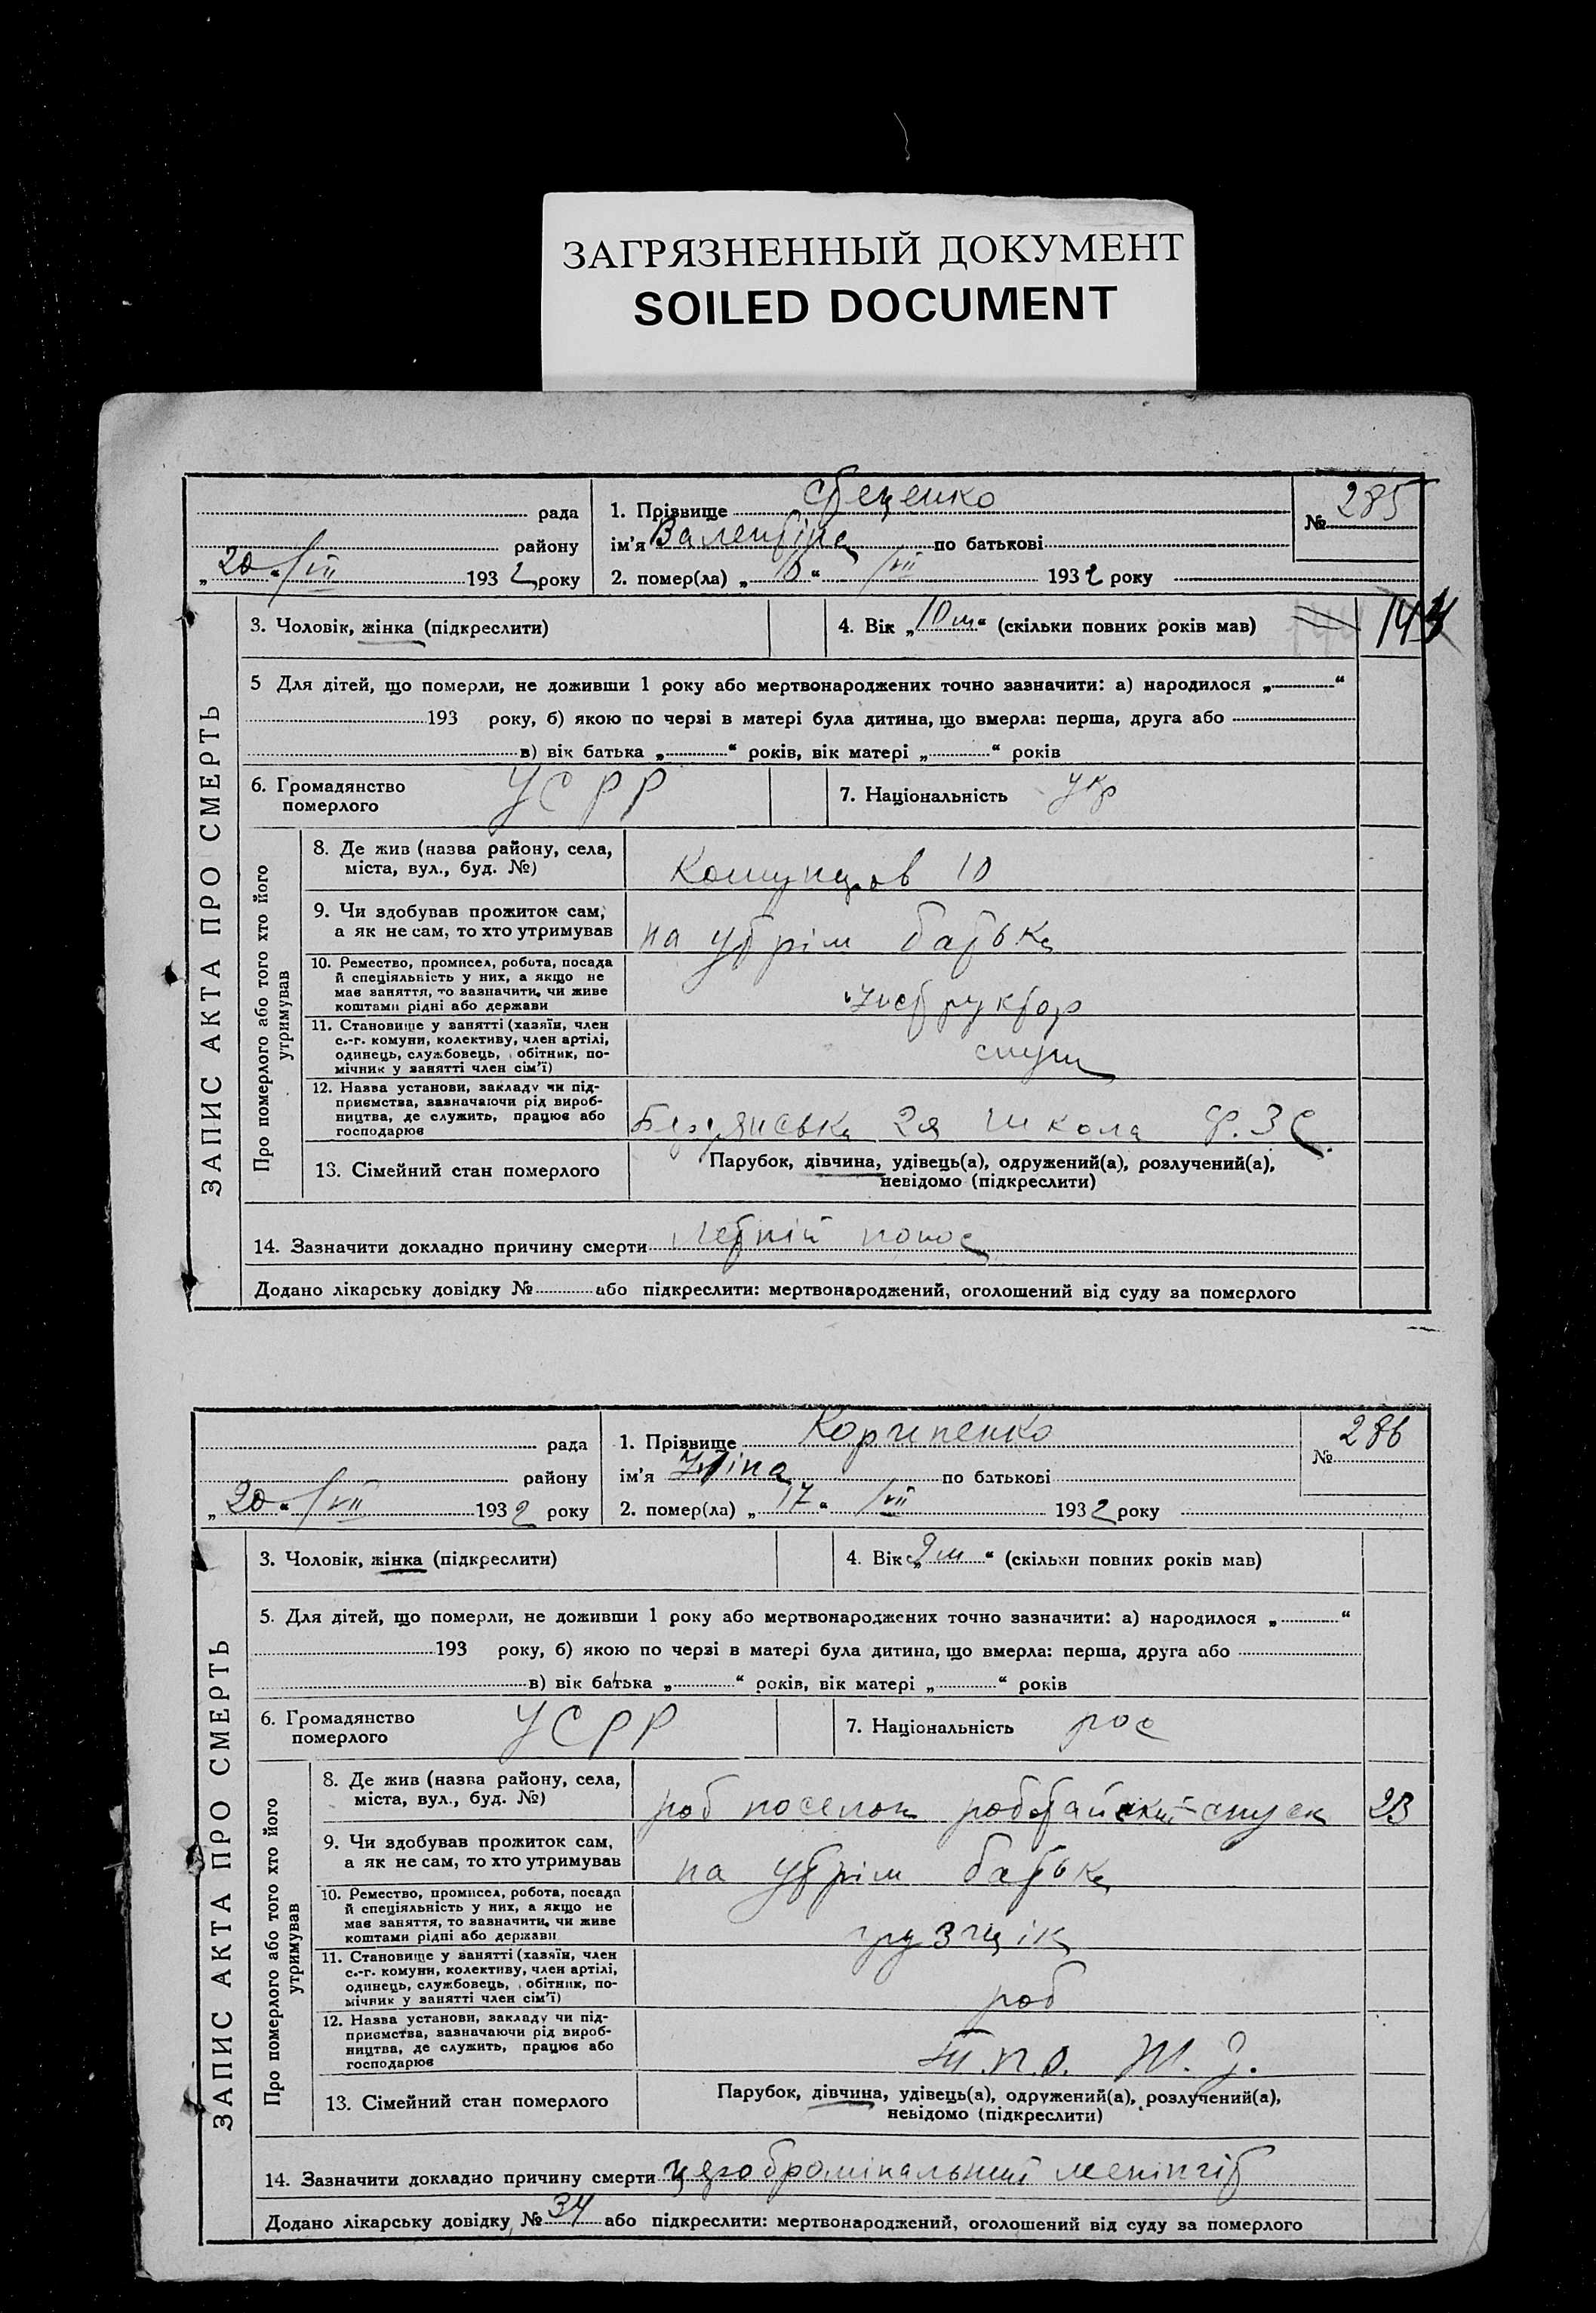 ЗАГРЯЗНЕННЫЙ ДОКУМЕНТ
SOILED DOCUMENT
ЗАПИС АКТА ПРО СМЕРТЬ
рада
району
„20“ /VII 1932 року
1. Прізвище Стеценко
ім'я Валентіна по батькові
2. помер(ла) „18“ /VII 1932 року
№ 285
3. Чоловік, жінка (підкреслити)
4. Вік „10 м“ (скільки повних років мав)
5 Для дітей, що померли, не доживши 1 року або мертвонароджених точно зазначити: а) народилося „ “
193 року, б) якою по черзі в матері була дитина, що вмерла: перша, друга або
в) вік батька „ “ років, вік матері „ “ років
6. Громадянство померлого УСРР
7. Національність укр
Про померлого або того хто його утримував
8. Де жив (назва району, села,
міста, вул., буд. №)
Комунаров 10
9. Чи здобував прожиток сам,
а як не сам, то хто утримував
на утрім батька
10. Ремество, промисел, робота, посада
й спеціяльність у них, а якщо не
має заняття, то зазначити, чи живе
коштами рідні або держави
інструктор
11. Становище у занятті (хазяїн, член
с.-г. комуни, колективу, член артілі,
одинець, службовець, обітник, по-
мічник у занятті член сім'ї)
служ
12. Назва установи, закладу чи під-
приємства, зазначаючи рід вироб-
ництва, де служить, працює або
господарює
Бердянська 2я школа Ф.З.С.
13. Сімейний стан померлого
Парубок, дівчина, удівець(а), одружений(а), розлучений(а),
невідомо (підкреслити)
14. Зазначити докладно причину смерти летній понос
Додано лікарську довідку № або підкреслити: мертвонароджений, оголошений від суду за померлого
ЗАПИС АКТА ПРО СМЕРТЬ
рада
району
„20“ /VII 1932 року
1. Прізвище
ім'я Ніна по батькові
2. помер(ла) „17“ /VII 1932 року
№ 286
3. Чоловік, жінка (підкреслити)
4. Вік „9 м“ (скільки повних років мав)
5. Для дітей, що померли, не доживши 1 року або мертвонароджених точно зазначити: а) народилося „ “
193 року, б) якою по черзі в матері була дитина, що вмерла: перша, друга або
в) вік батька „ “ років, вік матері „ “ років
6. Громадянство померлого УСРР
7. Національність рос
Про померлого або того хто його утримував
8. Де жив (назва району, села,
міста, вул., буд. №)
роб поселок спуск 23
9. Чи здобував прожиток сам,
а як не сам, то хто утримував
на утрім батька
10. Ремество, промисел, робота, посада
й спеціяльність у них, а якщо не
має заняття, то зазначити, чи живе
коштами рідні або держави
грузчік
11. Становище у занятті (хазяїн, член
с.-г. комуни, колективу, член артілі,
одинець, службовець, обітник, по-
мічник у занятті член сім'ї)
роб
12. Назва установи, закладу чи під-
приємства, зазначаючи рід вироб-
ництва, де служить, працює або
господарює
13. Сімейний стан померлого
Парубок, дівчина, удівець(а), одружений(а), розлучений(а),
невідомо (підкреслити)
14. Зазначити докладно причину смерти менінгіт
Додано лікарську довідку № 34 або підкреслити: мертвонароджений, оголошений від суду за померлого